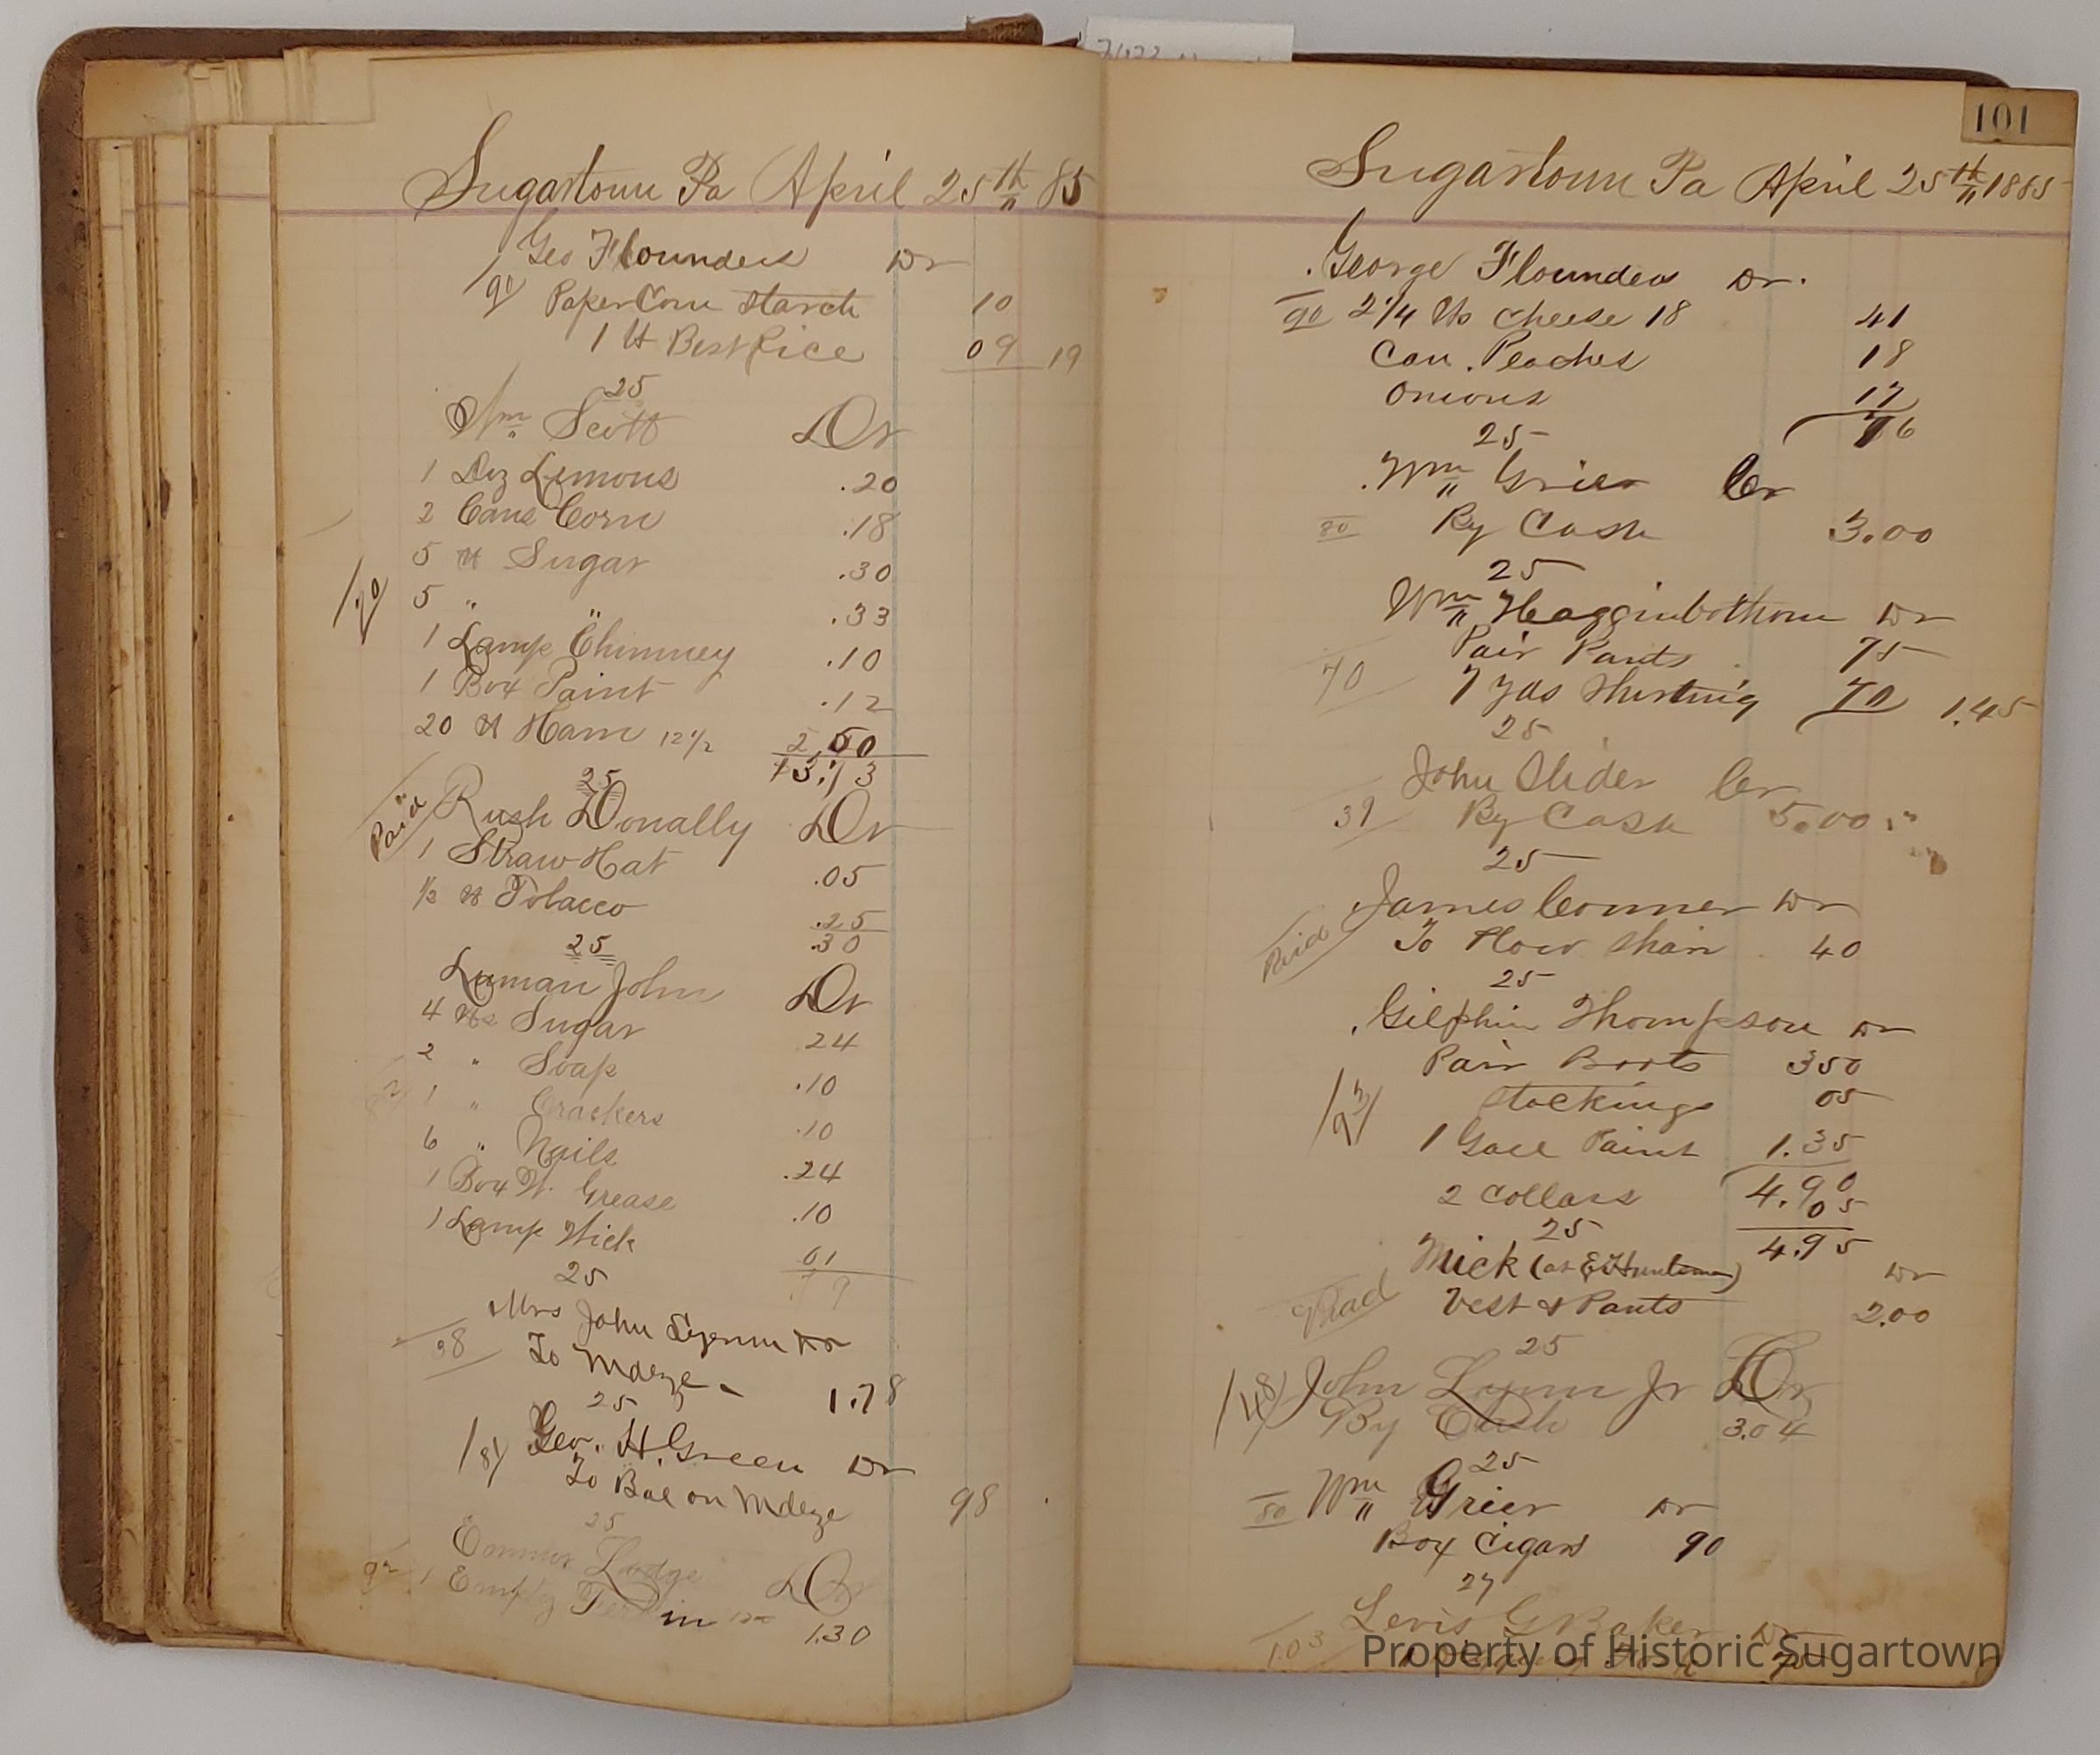 Sugartown Pa April 25th 85
Geo Flounders Dr
90 Paper Corn Starch 10
1 lb Best Rice 09 19
25
Wm Scott Dr
1 Doz Lemons .20
2 Cans Corn .18
5 lb Sugar .30
5 " " .33
70
1 Lamp Chimney .10
1 Box Paint .12
20 lb Ham 12 1/2 2,50
3.73
25
Paid Rush Donally Dr
1 Straw Hat .05
1/2 lb Tobacco .25
.30
25
Luman John Dr
4 lbs Sugar 24
2 " Soap .10
1 " Crackers .10
6 " Nails .24
1 Box W. Grease .10
1 Lamp Wick 01
79
25
Mrs John
38 To Mdze - 1.78
25
81 Geo. H. Green Dr
To Bal on Mdze 98
25
Lodge Dr
92 1 Empty 1.30
101
Sugartown Pa April 25th 1885
George Flounders Dr.
90 2 1/4 lbs Cheese 18 41
Can. Peaches 18
Onions 17
76
25
Wm Grier Cr
80 By Cash 3.00
25
Wm Heagginbothom Dr
Pair Pants 75
70 7 yds Shirting 70 1.45
25
John Slider Cr
39 By Cash 5.00
25
James Conner Dr
Paid To Plow Shair 40
25
Gilphin Thompson Dr
Pair Boots 350
93 Stockings 05
1 Gall Paint 1.35
4.90
2 Collars 05
25 4.95
Mick (at Dr
Paid Vest & Pants 2.00
25
48 John Lynn Jr Dr
By Cash 3.04
25
80 Wm Grier Dr
Box Cigars 90
27
Levis G Baker Dr
103 75
Property of Historic Sugartown